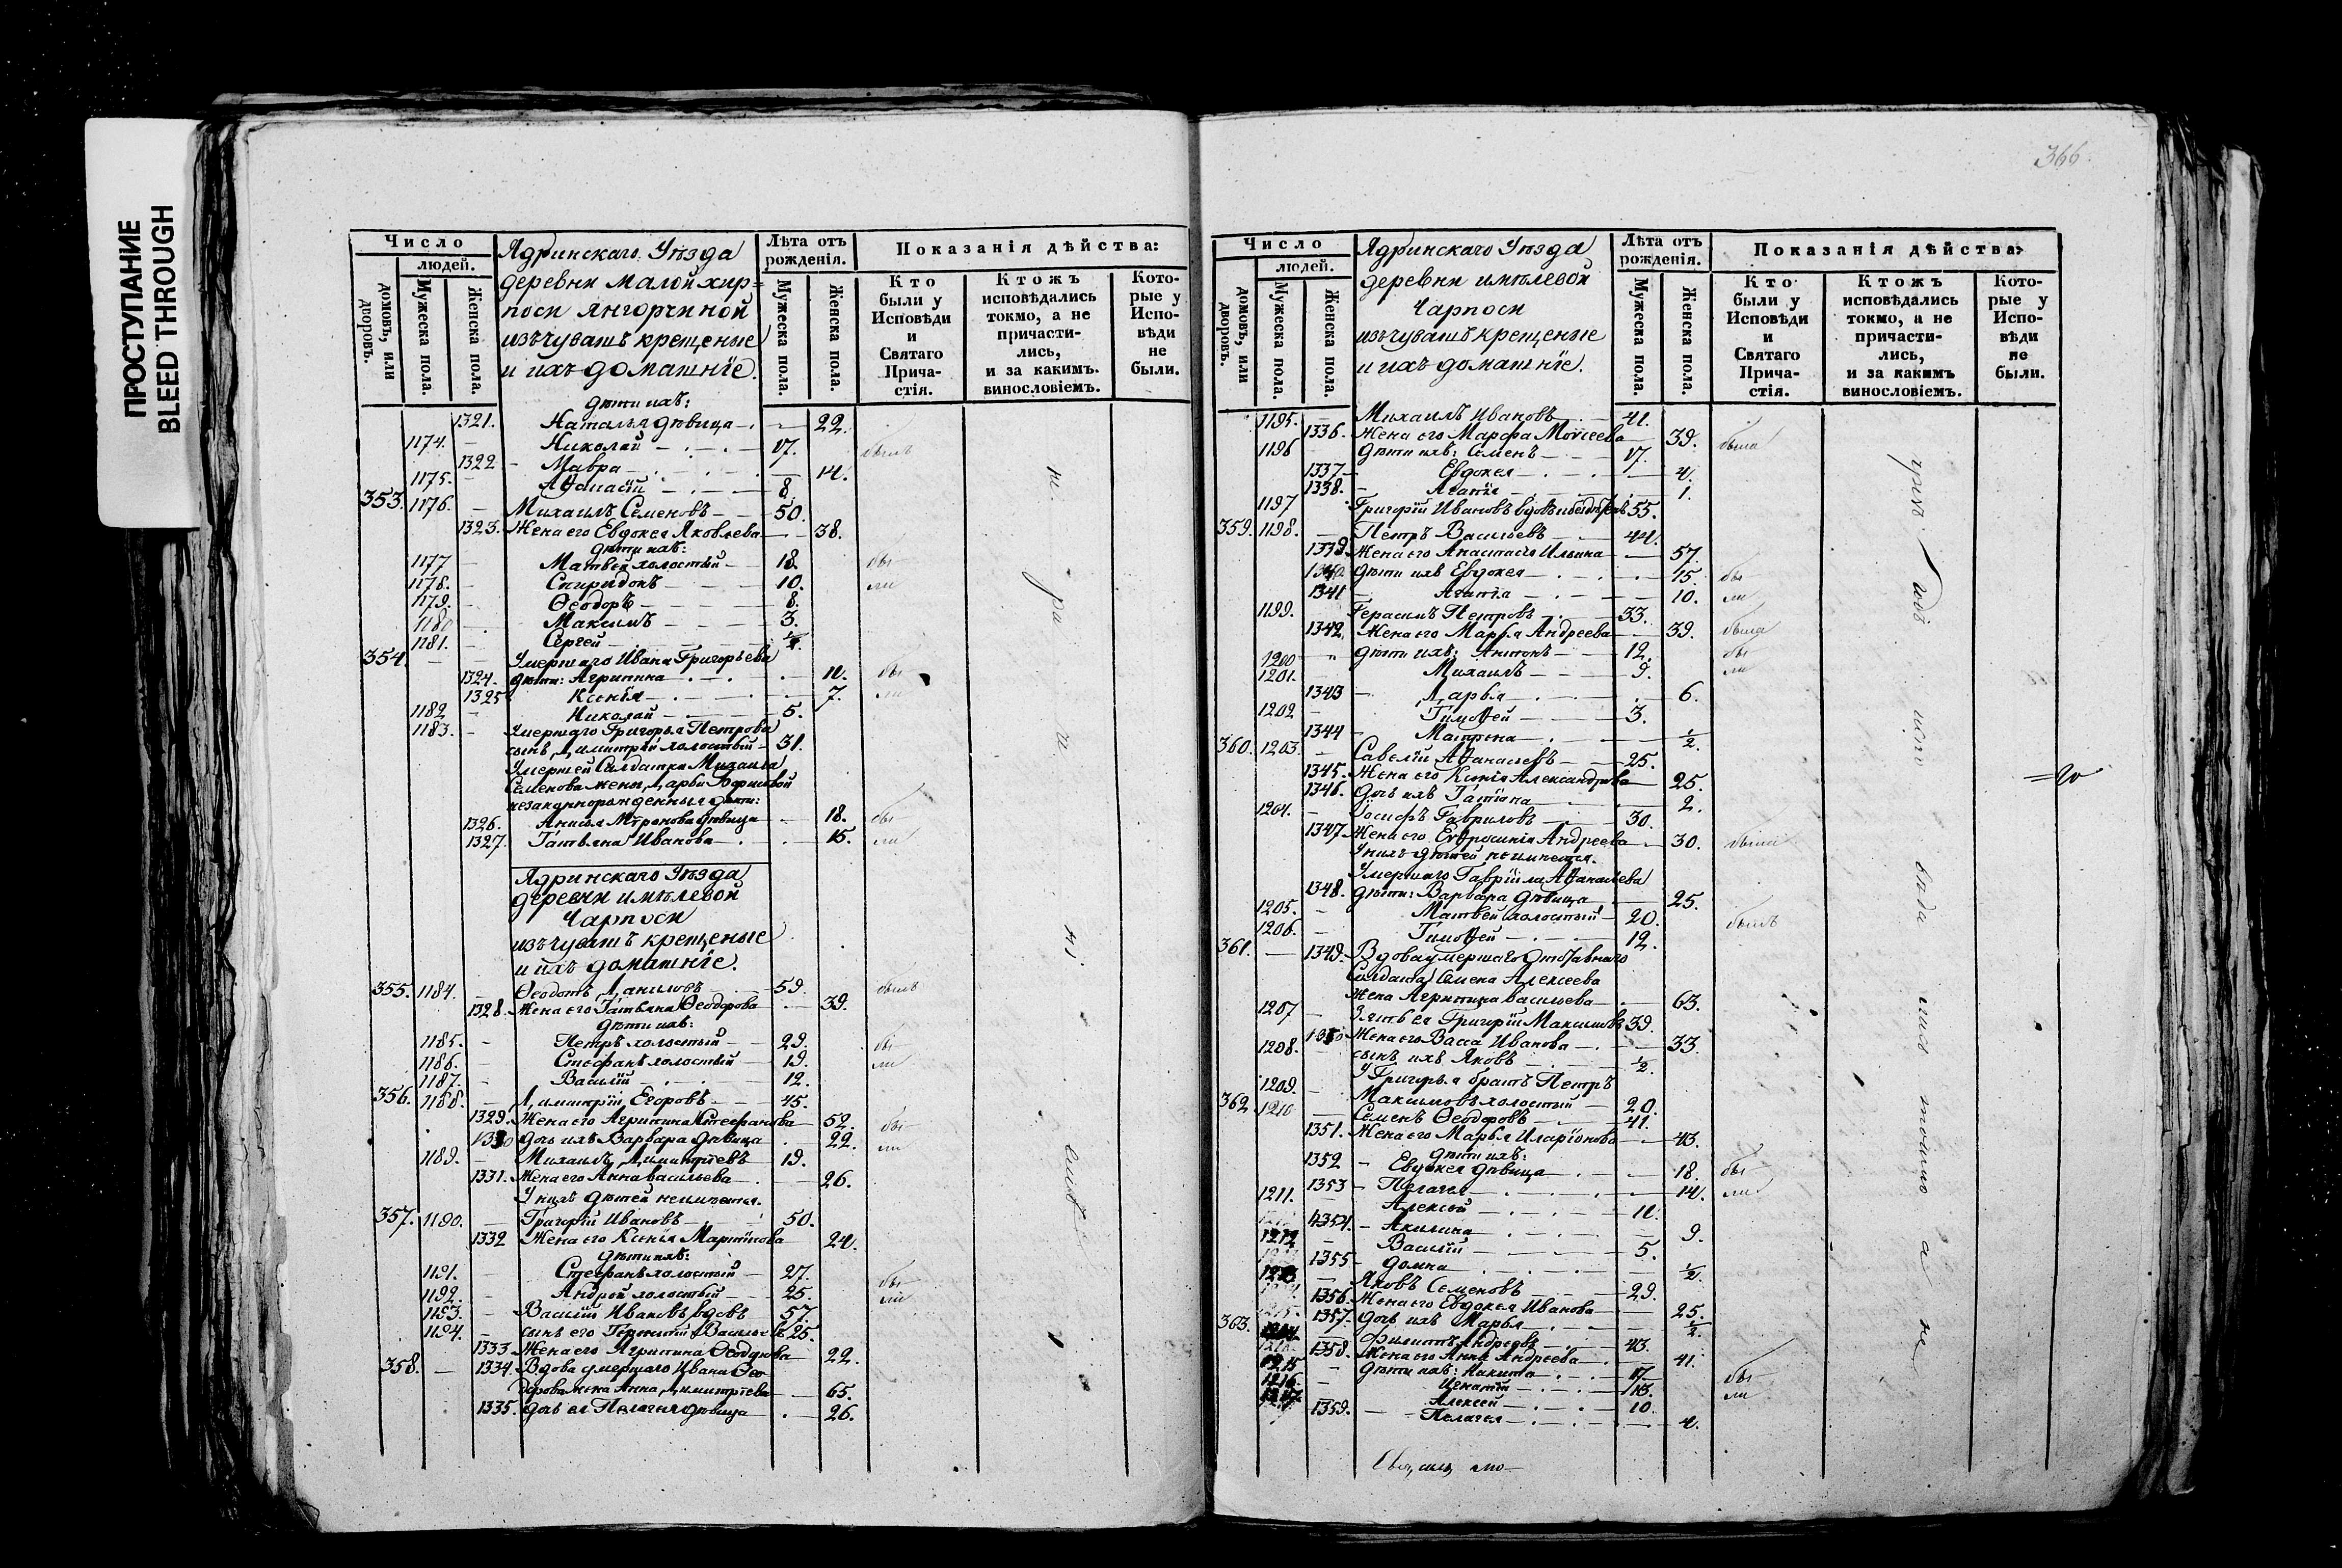 ПРОСТУПАНИЕ
BLEED THROUGH
366.
Число
людей.
домовъ, или дворовъ.
Мужеска пола.
Женска пола.
Ядринскаго Уѣзда
деревни Малой хир=
поси Янгорчиной
изъ чувашъ крещеные
и ихъ домашніе.
Лѣта отъ рожденія.
Мужеска пола.
Женска пола.
Показанія дѣйства:
Кто были у Исповѣди и Святаго Прича-стія.
Ктожъ исповѣдались токмо, а не причасти-лись, и за какимъ. винословіемъ.
Кото-рые у Испо-вѣди не были.
дѣти ихъ:
1321. Наталья дѣвица 22.
1174. Николай 17. былъ
1322 Мавра 14.
1175. Аѳанасій 8.
353. 1176. Михаилъ Семеновъ 50.
1323. Жена его Евдокея Яковлева 38.
дѣти ихъ:
1177 Матвей холостый 18. бы
1178. Спиридонъ 10. ли
1179. Ѳеодоръ 8.
1180 Максимъ 3.
1181. Сергей
354 Умершаго Ивана Григорьева
1324. дѣти: Агрипина бы
1325 Ксенія 7. ли
1182 Николай 5.
1183. Умершаго Григорья Петрова
сынъ Димитрій холостый 31.
Умершей Салдатки Михаила
Семенова жены Дарьи
незаконнорожденныя дѣти:
1326. Анисья Миронова дѣвица 18. бы
1327. Татьяна Иванова 15. ли
Ядринскаго Уѣзда
деревни имѣлевой
Чарпоси
изъ чувашъ крещеные
и ихъ домашніе.
355. 1184. Ѳеодотъ Даниловъ 59. былъ
1328. Жена его Татьяна Ѳеодорова 39.
дѣти ихъ:
1185. Петръ холостый 29. бы
1186. Стефанъ холостый 19. ли
1187. Василій 12.
356. 1188. Димитрій Егоровъ 45.
1329. Жена его Агрипина Стефанова 52. бы
1330 дочь ихъ Варвара дѣвица 22. ли
1189. Михаилъ Димитріевъ 19.
1331. Жена его Анна Васильева 26.
У нихъ дѣтей неимѣется.
357. 1190. Григорій Ивановъ 50.
1332 Жена его Ксенія Мартинова 24.
дѣти ихъ:
1191. Стефанъ холостый 27. бы
1192. Андрей холостый 25. ли
1193. Василій Ивановъ вдовъ 57.
1194. сынъ его Терентій Васильевъ 25.
1333. Жена его Агрипина 22.
358. 1334. Вдова умершаго Ивана Ѳео
дорова жена Анна Димитріева 65.
1335. дочь ея Пелагея дѣвица 26.
Число
людей.
домовъ, или дворовъ.
Мужеска пола.
Женска пола.
Ядринскаго Уѣзда
деревни имѣлевой
Чарпоси
изъ чувашъ крещеные
и ихъ домашніе.
Лѣта отъ рожденія.
Мужеска пола.
Женска пола.
Показанія дѣйства:
Кто были у Исповѣди и Святаго Прича-стія.
Ктожъ исповѣдались токмо, а не причасти-лись, и за какимъ винословіемъ.
Кото-рые у Испо-вѣди не были.
1195. Михаилъ Ивановъ 41.
1336. Жена его Марфа Моисеева 39. была
1196 дѣти ихъ: Семенъ 17.
1337 Евдокея 4.
1338. Агапія 1.
1197 Григорій Ивановъ вдовъ и бездѣтенъ 55.
359. 1198. Петръ Васильевъ 44.
1339 Жена его Анастасія Ильина 57.
1340 дѣти ихъ Евдокея 15. бы
1341 Агапія 10. ли
1199. Герасимъ Петровъ 33.
1342 Жена его Марья Андреева 39. была
1200 дѣти ихъ: Антонъ 12. бы
1201. Михаилъ 9. ли
1343 Дарья 6.
1202 Тимоѳей 3.
1344 Матрена 1/2.
360. 1203. Савелій Аѳанасьевъ 25.
1345. Жена его Ксенія Александрова 25.
1346. дочь ихъ Татіана 2.
1204. Іосифъ Гавриловъ 30.
1347 Жена его Евфросинія Андреева 30. были
У нихъ дѣтей неимѣется.
Умершаго Гавріила Аѳанасьева
1348. дѣти: Варвара дѣвица 25.
1205. Матвей холостый 20. былъ
1206. Тимоѳей 12.
361. 1349. Вдова умершаго отставнаго
Салдата Семена Алексеева
жена Агрипина Васильева 63.
1207 Зять ея Григорій Максимовъ 39.
1350 Жена его Васса Иванова 33.
1208. сынъ ихъ Яковъ 1/2.
1209. У Григорья братъ Петръ
Максимовъ холостый 20.
362 1210 Семенъ Ѳеодоровъ 41.
1351. Жена его Марья Иларіонова 43.
дѣти ихъ:
1352 Евдокея дѣвица 18. бы
1353 Пелагея 14. ли
1211. Алексей
1354. Акилина 9.
1212 Василій 5.
1355 Домна 1/2.
1213 Яковъ Семеновъ 29.
1356. Жена его Евдокея Иванова 25.
1357. дочь ихъ Марья 1/2.
363. 1214 Филиппъ Андреевъ 43.
1358. Жена его Анна Андреева 41.
1215 дѣти ихъ: Никита 17. бы
1216 Игнатій 13. ли
1217 Алексей 10.
1359. Пелагея 4.